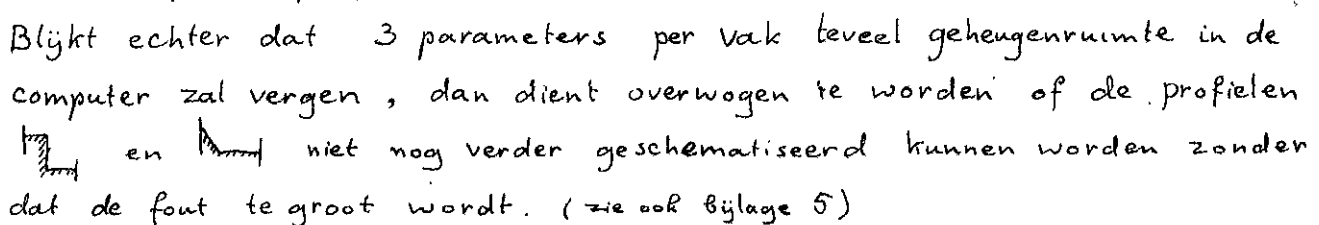 Blijkt echter dat 3 parameters per vak teveel geheugenruimte in de
computer zal vergen, dan dient overwogen te worden of de profielen
en niet nog verder geschematiseerd kunnen worden zonder
dat de fout te groot wordt. (zie ook Bijlage 5)